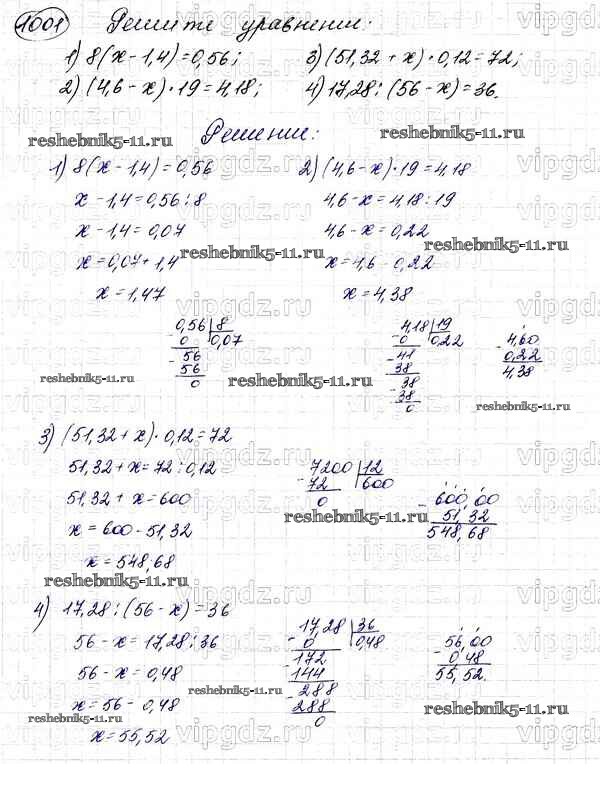 1001 Решите уравнения:
1) 8(x - 1,4) = 0,56; 3) (51,32 + x) · 0,12 = 72;
2) (4,6 - x) · 19 = 4,18; 4) 17,28 : (56 - x) = 36.
reshebnik5-11.ru Решение: reshebnik5-11.ru
1) 8(x - 1,4) = 0,56
x - 1,4 = 0,56 : 8
x - 1,4 = 0,07
x = 0,07 + 1,4
x = 1,47
2) (4,6 - x) · 19 = 4,18
4,6 - x = 4,18 : 19
4,6 - x = 0,22
x = 4,6 - 0,22
x = 4,38
reshebnik5-11.ru
reshebnik5-11.ru
0,56 | 8
- 0 | 0,07
- 56
56
0
4,18 | 19
- 0 | 0,22
- 41
38
- 38
38
0
- 4,60
0,22
4,38
reshebnik5-11.ru
reshebnik5-11.ru
reshebnik5-11.ru
3) (51,32 + x) · 0,12 = 72
51,32 + x = 72 : 0,12
51,32 + x = 600
x = 600 - 51,32
x = 548,68
- 7200 | 12
72 | 600
0
- 600,00
51,32
548,68
reshebnik5-11.ru
reshebnik5-11.ru
4) 17,28 : (56 - x) = 36
56 - x = 17,28 : 36
56 - x = 0,48
x = 56 - 0,48
x = 55,52
- 17,28 | 36
0 | 0,48
- 172
144
- 288
288
0
- 56,00
0,48
55,52.
reshebnik5-11.ru
reshebnik5-11.ru
reshebnik5-11.ru
vipgdz.ru